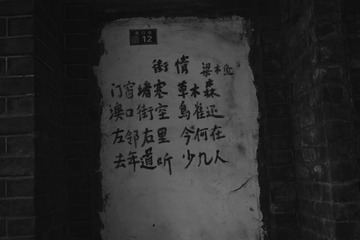 12
街情 梁木
门窗堵塞 草木森
澳口街空 鸟雀还
左邻右里 今何在
去年道听 少几人